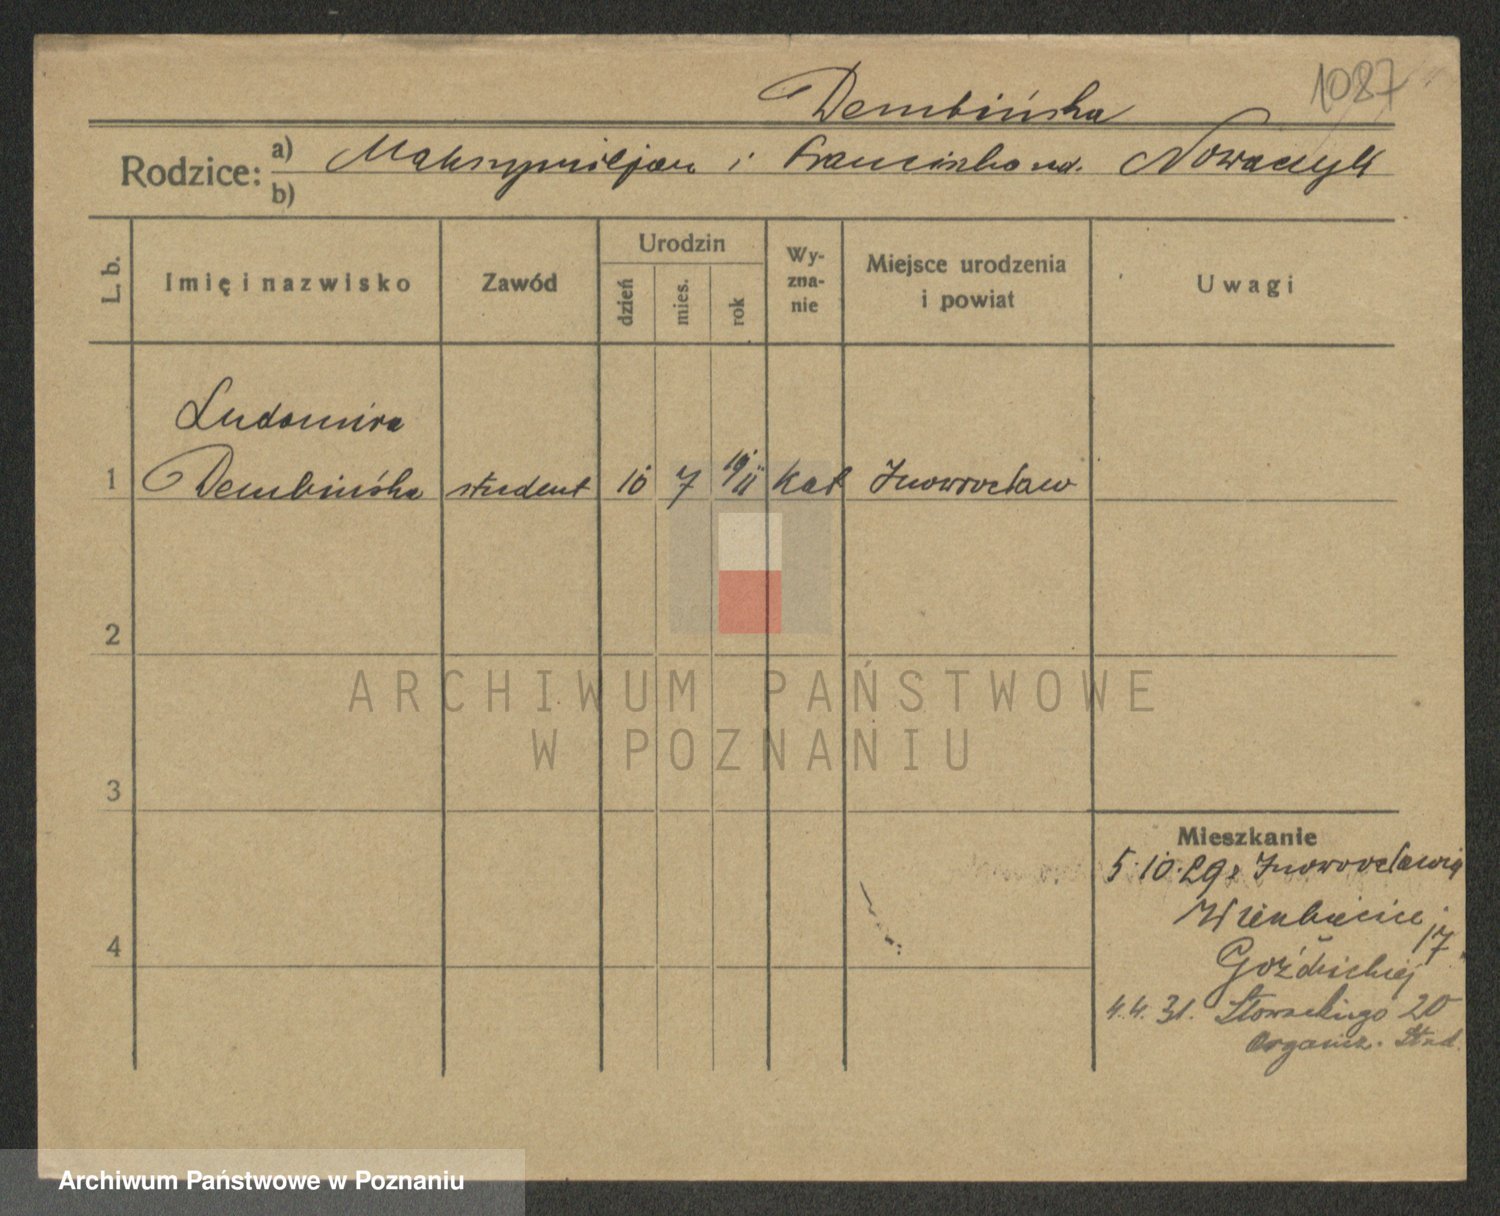 1087
Dembińska
Rodzice: a) Maksymiljan i Franciszka ur. Nowaczyk
b)
L. b.
Imię i nazwisko
Zawód
Urodzin
dzień
mies.
rok
Wy-
zna-
nie
Miejsce urodzenia
i powiat
Uwagi
Ludomira
1 Dembińska student 10 7 1911 kat Inowrocław
2
ARCHIWUM PAŃSTWOWE
W POZNANIU
3
Mieszkanie
5.10.29 z Inowrocławia
17
4
4.4.31. Słowackiego 20
Organiz. Stud.
Archiwum Państwowe w Poznaniu